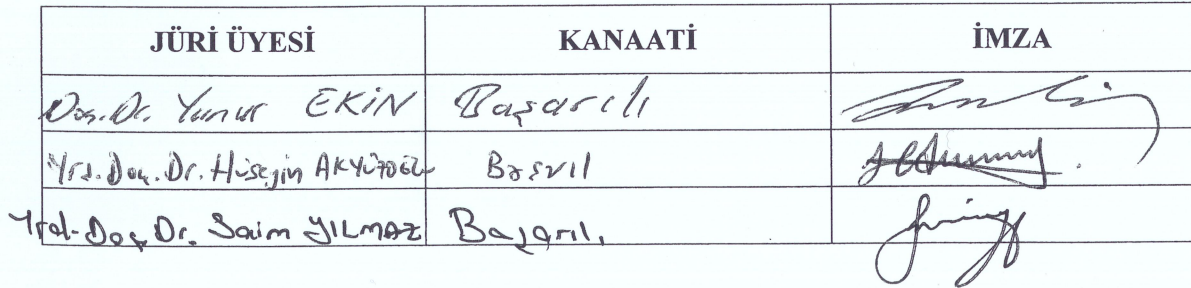 JÜRİ ÜYESİ KANAATİ İMZA
Doç. Dr. Yunus EKİN Başarılı
Yrd. Doç. Dr. Hüseyin AKYÜZOĞLU
Yrd. Doç. Dr. Saim YILMAZ Başarılı